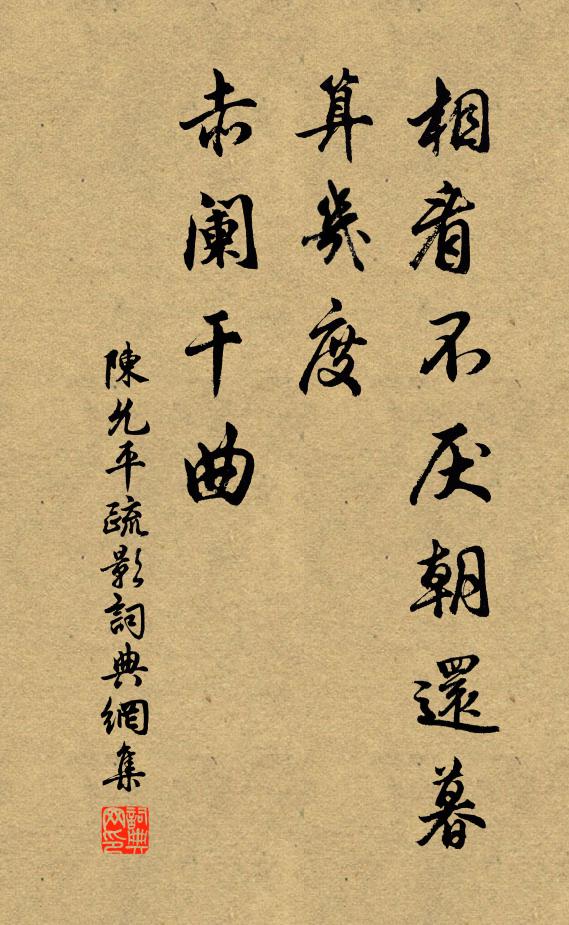 相看不厌朝還暮
算幾度
赤阑干曲
陳允平疏影詞典網集
詞典网印